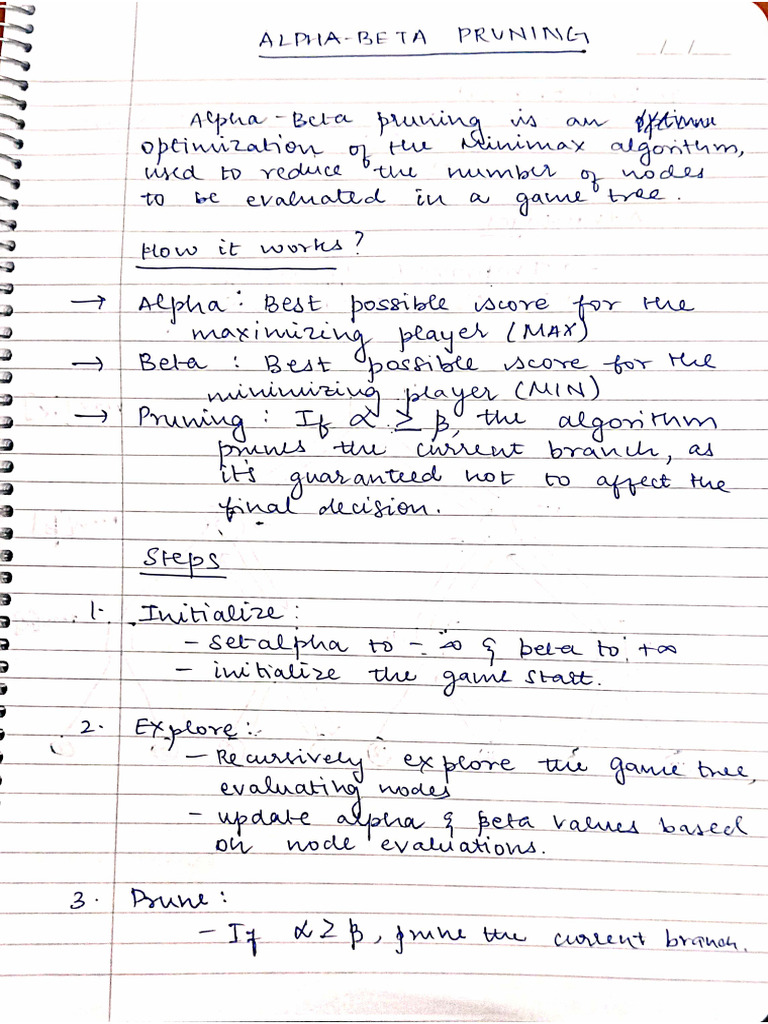 ALPHA-BETA PRUNING
Alpha-Beta pruning is an
optimization of the Minimax algorithm,
used to reduce the number of nodes
to be evaluated in a game tree.
How it works?
→ Alpha : Best possible score for the
maximizing player (MAX)
→ Beta : Best possible score for the
minimizing player (MIN)
→ Pruning : If α ≥ β, the algorithm
prunes the current branch, as
it's guaranteed not to affect the
final decision.
Steps
1. Initialize :
- set alpha to - ∞ & beta to +∞
- initialize the game start.
2. Explore :
- Recursively explore the game tree,
evaluating nodes
- update alpha & beta values based
on node evaluations.
3. Prune :
- If α ≥ β, prune the current branch.